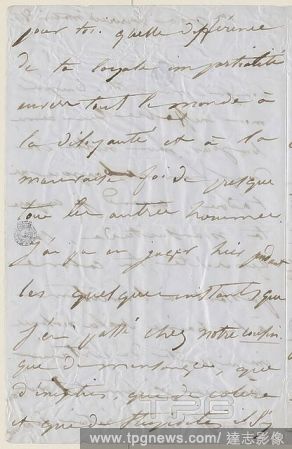 pour toi. quelle différence
de ta loyale impartialité
envers tout le monde à
la déloyauté et à la
mauvaise foi de presque
tous les autres hommes
j'ai pu en juger hier pendant
les quelques instants que
j'ai passé chez notre cousin.
que de mensonges, que
d'inepties, que de colère
et que de stupidités !
TPG
www.tpgnews.com / 達志影像